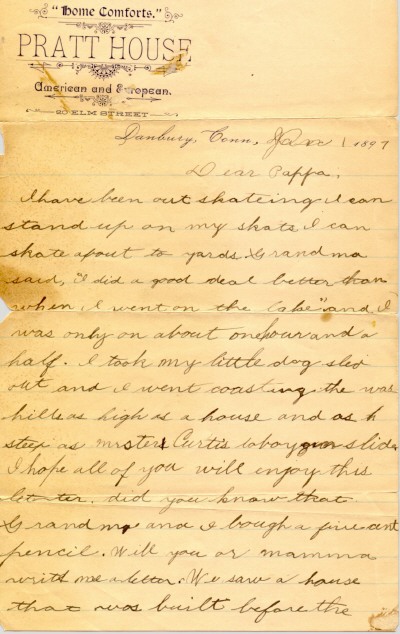 "Home Comforts."
PRATT HOUSE
American and European.
20 ELM STREET
Danbury, Conn, Jan 1 1897
Dear Pappa,
I have been out skateing I can
stand up on my skats I can
skate about to yards. Grandma
said, "I did a good deal better than
when I went on the lake" and I
was only on about one hour and a
half. I took my little dog sled
out and I went coasting the was
hills as high as a house and as
steep as Curtis slide
I hope all of you will enjoy this
did you know that
Grandma and I bough a five cent
pencil. Will you or mamma
writh me a letter. We saw a house
that was built before the